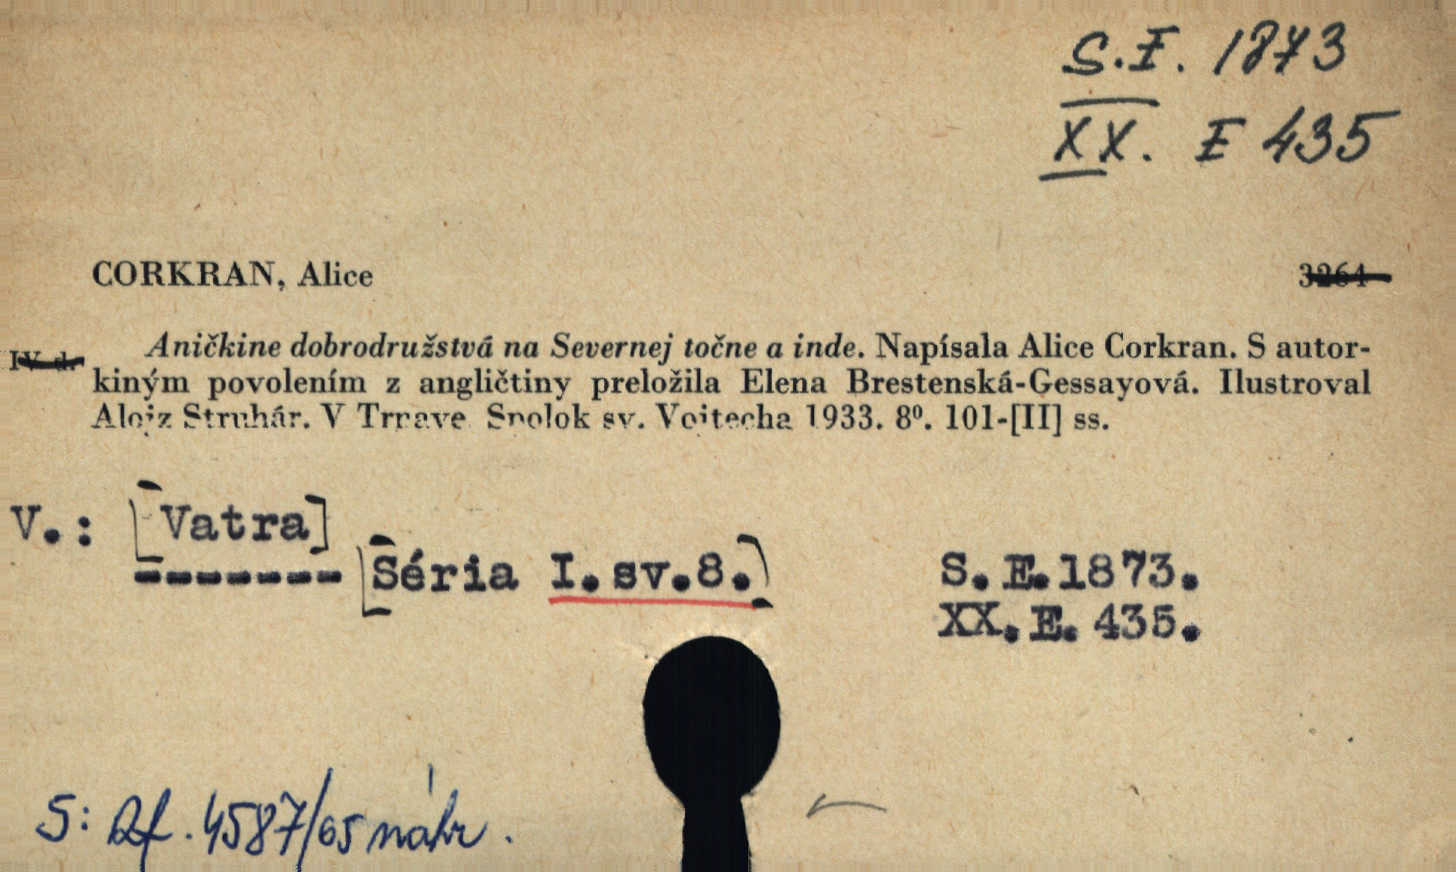 S.E. 1873
XX. E 435
CORKRAN, Alice 3264
IV. d. Aničkine dobrodružstvá na Severnej točne a inde. Napísala Alice Corkran. S autor-
kiným povolením z angličtiny preložila Elena Brestenská-Gessayová. Ilustroval
Alojz Struhár. V Trnave Spolok sv. Vojtecha 1933. 8⁰. 101-[II] ss.
V.: [Vatra]
-------
[Séria I. sv.8.] S. E.1873.
XX. E. 435.
S: Df. 4587/65 náhr.